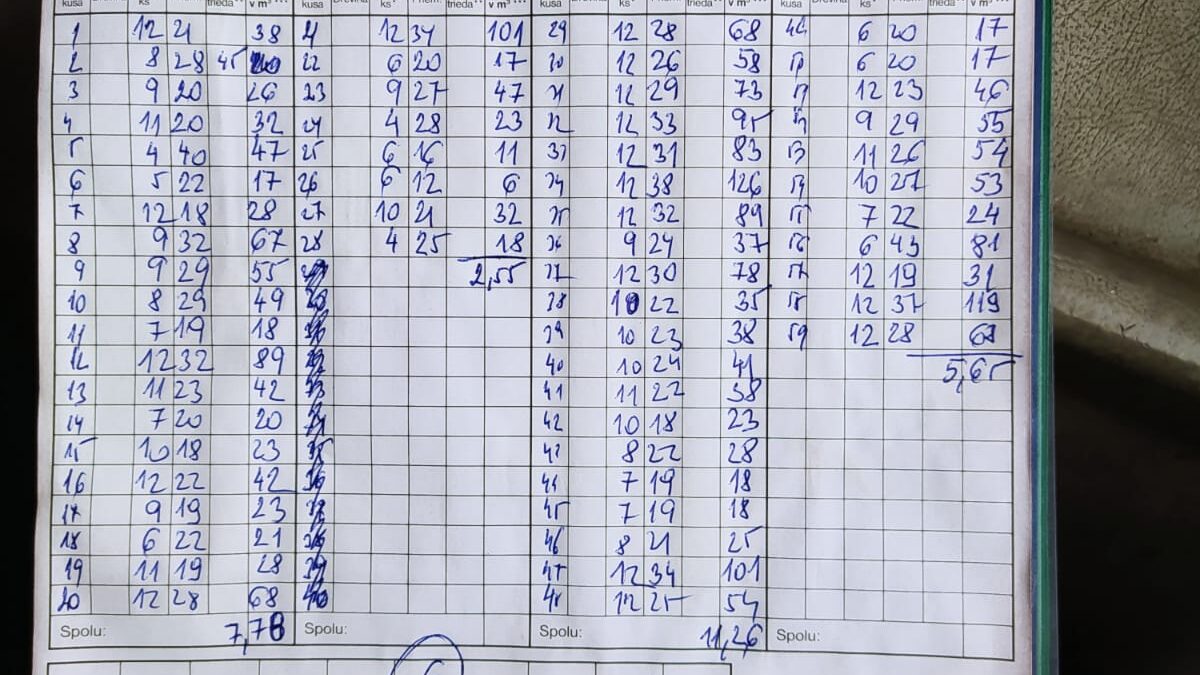 kusa ks trieda v m³ kusa ks trieda v m³ kusa ks trieda v m³ kusa ks trieda v m³
1 12 21 38 21 12 34 101 29 12 28 68 49 6 20 17
2 8 28 45 22 6 20 17 30 12 26 58 50 6 20 17
3 9 20 26 23 9 27 47 31 12 29 73 51 12 23 46
4 11 20 32 24 4 28 23 32 12 33 95 52 9 29 55
5 4 40 47 25 6 16 11 33 12 31 83 53 11 26 54
6 5 22 17 26 6 12 6 34 12 38 126 54 10 27 53
7 12 18 28 27 10 21 32 35 12 32 89 55 7 22 24
8 9 32 67 28 4 25 18 36 9 24 37 56 6 43 81
9 9 29 55 2,55 37 12 30 78 57 12 19 31
10 8 29 49 38 10 22 35 58 12 37 119
11 7 19 18 39 10 23 38 59 12 28 68
12 12 32 89 40 10 24 41 5,65
13 11 23 42 41 11 22 38
14 7 20 20 42 10 18 23
15 10 18 23 43 8 22 28
16 12 22 42 44 7 19 18
17 9 19 23 45 7 19 18
18 6 22 21 46 8 21 25
19 11 19 28 47 12 34 101
20 12 28 68 48 12 25 54
Spolu: 7,78 Spolu: Spolu: 11,26 Spolu: